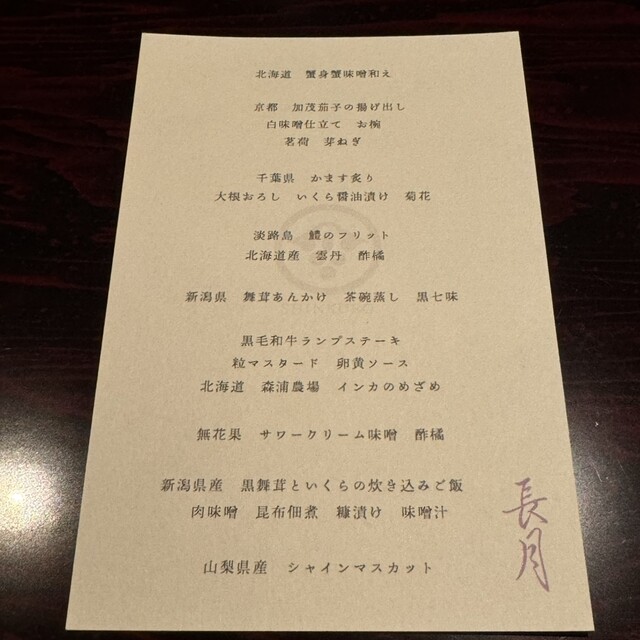 北海道　蟹身蟹味噌和え
京都　加茂茄子の揚げ出し
白味噌仕立て　お椀
茗荷　芽ねぎ
千葉県　かます炙り
大根おろし　いくら醤油漬け　菊花
淡路島　鱧のフリット
北海道産　雲丹　酢橘
新潟県　舞茸あんかけ　茶碗蒸し　黒七味
黒毛和牛ランプステーキ
粒マスタード　卵黄ソース
北海道　森浦農場　インカのめざめ
無花果　サワークリーム味噌　酢橘
新潟県産　黒舞茸といくらの炊き込みご飯
肉味噌　昆布佃煮　糠漬け　味噌汁
山梨県産　シャインマスカット
長月